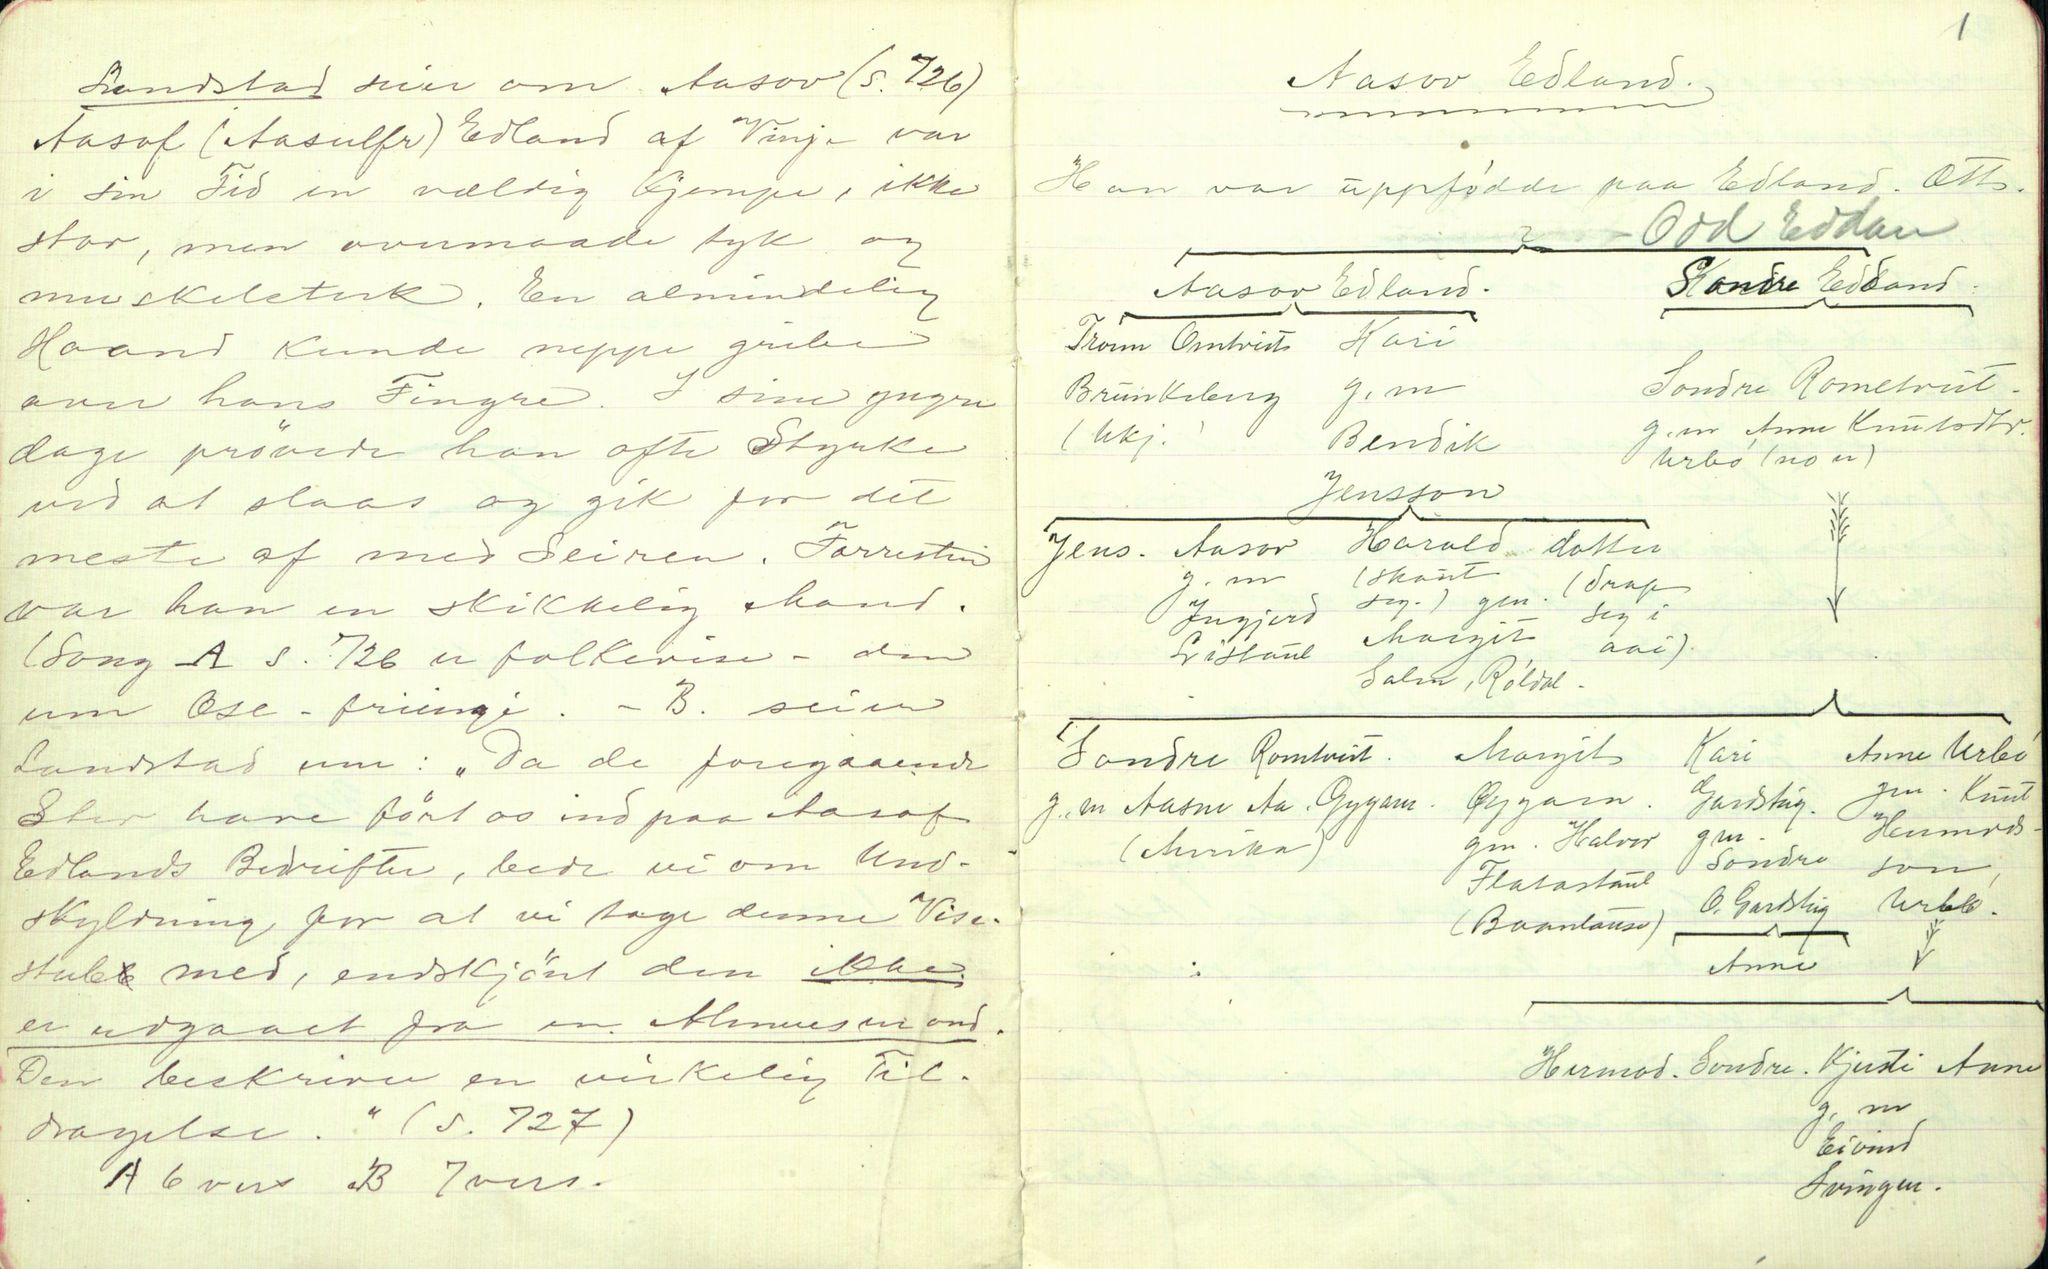 Landstad seier om Aasov (s. 726)
Aasof (Aasulfr) Edland af Vinje var
i sin Tid en vældig Kjempe, ikke
stor, men overmaade tyk og
muskelsterk. En almindelig
Haand kunde neppe gribe
over hans Fingre. I sine yngre
dage prövede han ofte Styrke
ved at slaas og gik for det
meste af med Seiren. Forresten
var han en skikkelig Mand.
(Song A s. 726 er folkevise - den
um Ose-friingi. - B. seier
Landstad um: "Da de foregaaende
Stev have fört os ind paa Aasof
Edlands Bedrifter, bede vi om Und-
skyldning for at vi tage denne Vise-
stubb med, endskjönt den ikke
er udgaaet fra en Almuesmand.
Den beskriver en virkelig Til-
dragelse." (s. 727)
A 6 vers B 7 vers.
1
Aasov Edland.
Han var uppfødde paa Edland. Ætt.
? - Odd Eddan
Aasov Edland. Kondre Edland.
Tronn Omtveit Kari
Brunkeberg g. m Sondre Rometveit.
(Ukj.) Bendik g. m Anne Knutsdtr.
Urbø (no u)
Jensson
Jens. Aasov Harald dotter
g. m (skaut (drap
Ingjerd seg.) gm. seg i
Listaul Margit aai).
Salm, Röldal.
Sondre Romtveit. Margit Kari Anne Urbö
g. m Aasne Aa. Øygarn. Øygarn. Gardstig. gm. Knut
(Amrika) gm. Halvor gm. Hermods-
Flatastaul Sondre son,
(Baanlause) O. Gardstig Urbö.
Anne
Hermod. Sondre. Kjersti Anne
g. m
Eivind
Svingen.